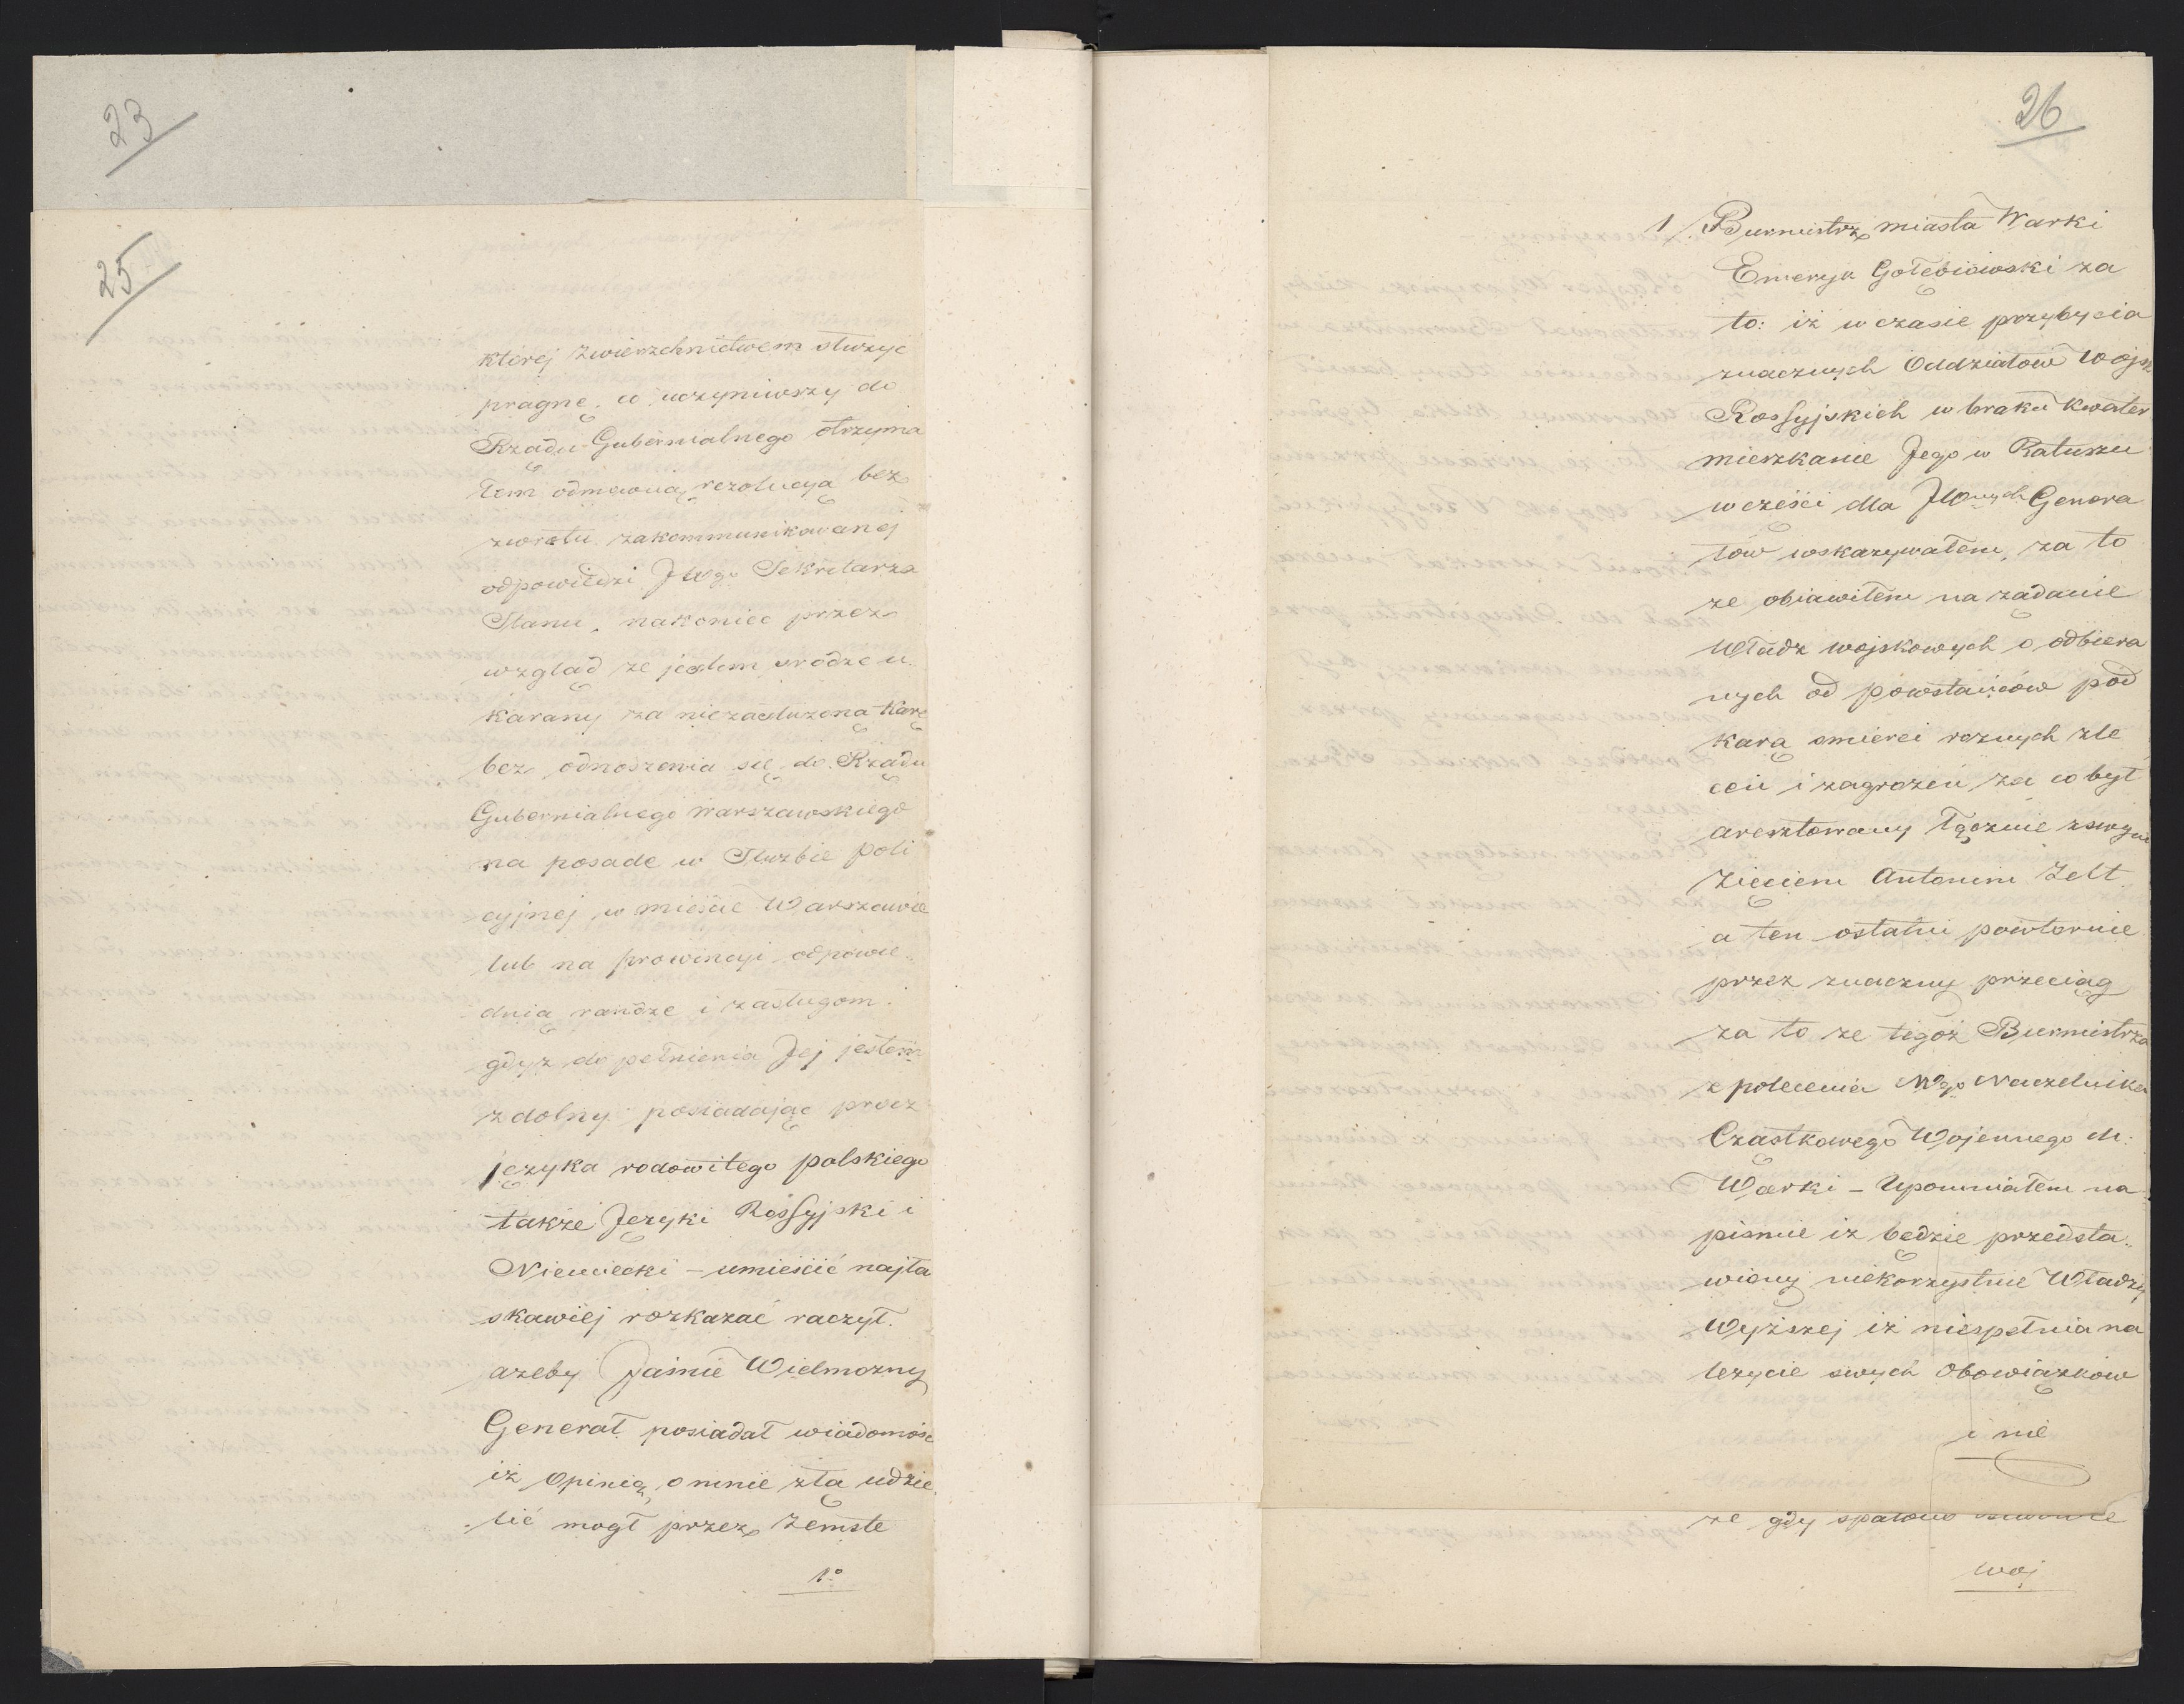 23
25
której zwierzchnictwem służyć
pragnę, co uczyniwszy do
Rządu Gubernialnego otrzyma
łem odmowną rezolucyą bez
zwrotu zakommunikowanej
odpowiedzi JWgo Sekretarza
Stanu, nakoniec przez
wzgląd że jestem srodze u-
karany za niezasłużoną Karę
bez odnoszenia się do Rządu
Gubernialnego Warszawskiego
na posadę w Służbie Poli
cyjnej w mieście Warszawie
lub na prowincyi odpowie-
dnią randze i zasługom.
gdyż do pełnienia Jej jestem
zdolny posiadając procz
języka rodowitego polskiego
także Języki Rossyjski i
Niemiecki – umieścić najła
skawiej rozkazać raczył.
ażeby Jaśnie Wielmożny
Generał posiadał wiadomość
iż Opinię o mnie złą udzie-
lić mogł przez zemstę
1o
26
1/. Burmistrz miasta Warki
Emeryk Gołębiowski za
to: iż w czasie przybycia
znacznych Oddziałow Wojsk
Rossyjskich w braku Kwater
mieszkanie Jego w Ratuszu
w części dla JWnych Genera
łów wskazywałem, za to
że obiawiłem na żądanie
Władz wojskowych o odbiera
nych od powstańców pod
karą smierci roznych zle
ceń i zagrożeń za co był
aresztowany łącznie z swym
Zięciem Antonim Zelt
a ten ostatni powtornie
przez znaczny przeciąg
za to że tegoż Burmistrza
z polecenia Wgo Naczelnika
Cząstkowego Wojennego m:
Warki – Upomniałem na
pismie iż będzie przedsta-
wiony niekorzystnie Władzy
Wyższej iż niespełnia na
leżycie swych Obowiązków
i nie
że gdy spalono
woj